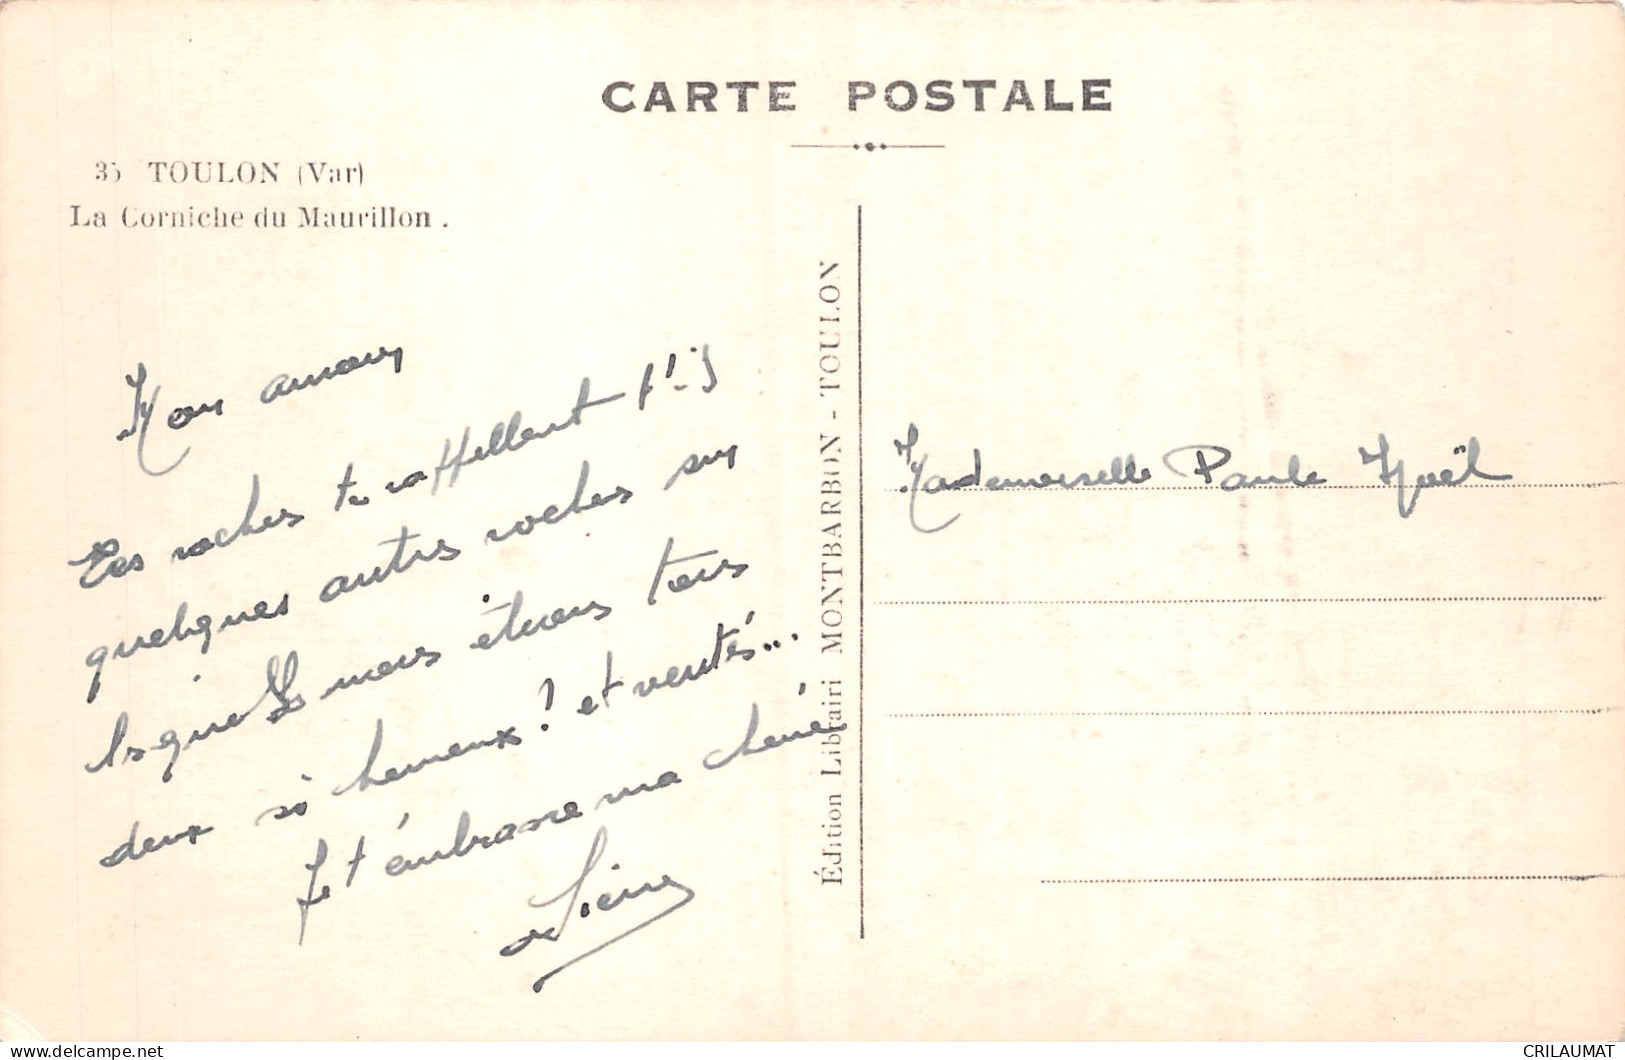 CARTE POSTALE
35 TOULON (Var)
La Corniche du Maurillon .
Mon amour
Ces roches te rappellent t'-il
quelques autres roches sur
lesquelles nous étions tous
deux si heureux ! et ventés...
Je t'embrasse ma chérie
Pierre
Édition Librairi MONTBARBON - TOULON
Mademoiselle Paule Noël
CRILAUMAT